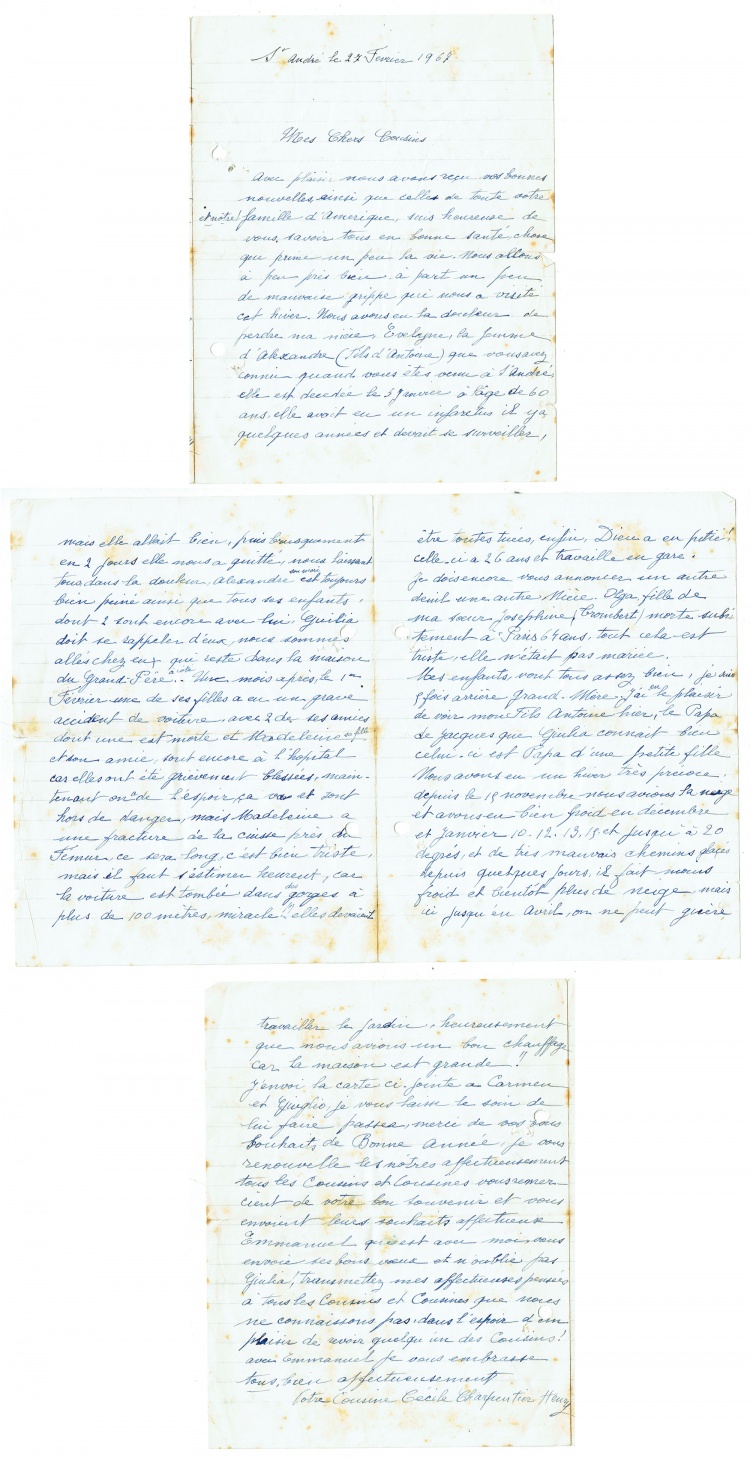 St André le 27 Fevrier 1968
Mes Chers Cousins
Avec plaisir nous avons reçu vos bonnes
nouvelles, ainsi que celles de toute votre
et nôtre! famille d'Amerique, suis heureuse de
vous savoir tous en bonne santé chose
que prime un peu la vie. Nous allons
à peu près bien à part un peu
de mauvaise grippe qui nous a visité
cet hiver. Nous avons eu la douleur de
perdre ma nièce, Evelyne, la femme
d'Alexandre (Fils d'Antoine) que vous avez
connu quand vous êtes venu à St André,
elle est decedée le 5 Janvier à l'âge de 60
ans, elle avait eu un infarctus il y a
quelques années et devait se surveiller,
mais elle allait bien, puis brusquement
en 2 jours elle nous a quitté, nous laissant
tous dans la douleur, Alexandre son mari est toujours
bien peiné ainsi que tous ses enfants,
dont 2 sont encore avec lui. Guilia
doit se rappeler d'eux, nous sommes
allés chez eux qui reste dans la maison
du Grand-Père. Un mois après, le 1er
Fevrier une de ses filles a eu un grave
accident de voiture, avec 2 de ses amies
dont une est morte et Madeleine sa fille
et son amie, sont encore à l'hopital
car elles ont été grievement blessées, main-
tenant on a de l'espoir, ça va et sont
hors de danger, mais Madeleine a
une fracture de la cuisse près du
Fémur, ce sera long, c'est bien triste,
mais il faut s'estimer heureux, car
la voiture est tombée dans des gorges à
plus de 100 mètres, miracle!! elles devaient
être toutes tuées, enfin, Dieu a eu pitié!
celle-ci a 26 ans et travaille en gare.
je dois encore vous annoncer un autre
deuil une autre Nièce. Olga, fille de
ma sœur Josephine (Trombert) morte subi-
tement à Paris 64 ans, tout cela est
triste, elle n'était pas mariée.
Mes enfants, vont tous assez bien, je suis
5 fois arrière Grand-Mère, j'ai eu le plaisir
de voir mon Fils Antoine hier, le Papa
de Jacques que Giulia connait bien
celui-ci est Papa d'une petite fille
Nous avons eu un hiver très précoce.
depuis le 15 novembre nous avions la neige
et avons eu bien froid en décembre
et Janvier 10-12-13,15 et jusqu'à 20
degrés, et de très mauvais chemins glacés
depuis quelques jours, il fait moins
froid et bientôt plus de neige, mais
ici jusqu'en Avril, on ne peut guère,
travailler le jardin, heureusement
que nous avions un bon chauffage
car la maison est grande!!
J'envoi la carte ci jointe a Carmen
et Giuglio, je vous laisse le soin de
lui faire passer, merci de vos bons
souhaits de Bonne Année, je vous
renouvelle les nôtres affectueusement
tous les Cousins et Cousines vous remer-
cient de votre bon souvenir et vous
envoient leurs souhaits affectueux
Emmanuel qui est avec moi, vous
envoie ses bons vœux et n'oublie pas
Giulia! transmettez mes affectueuses pensées
à tous les Cousins et Cousines que nous
ne connaissons pas, dans l'espoir d'un
plaisir de revoir quelqu'un des Cousins!
avec Emmanuel je vous embrasse
tous, bien affectueusement
Votre Cousine Cécile Charpentier Henry